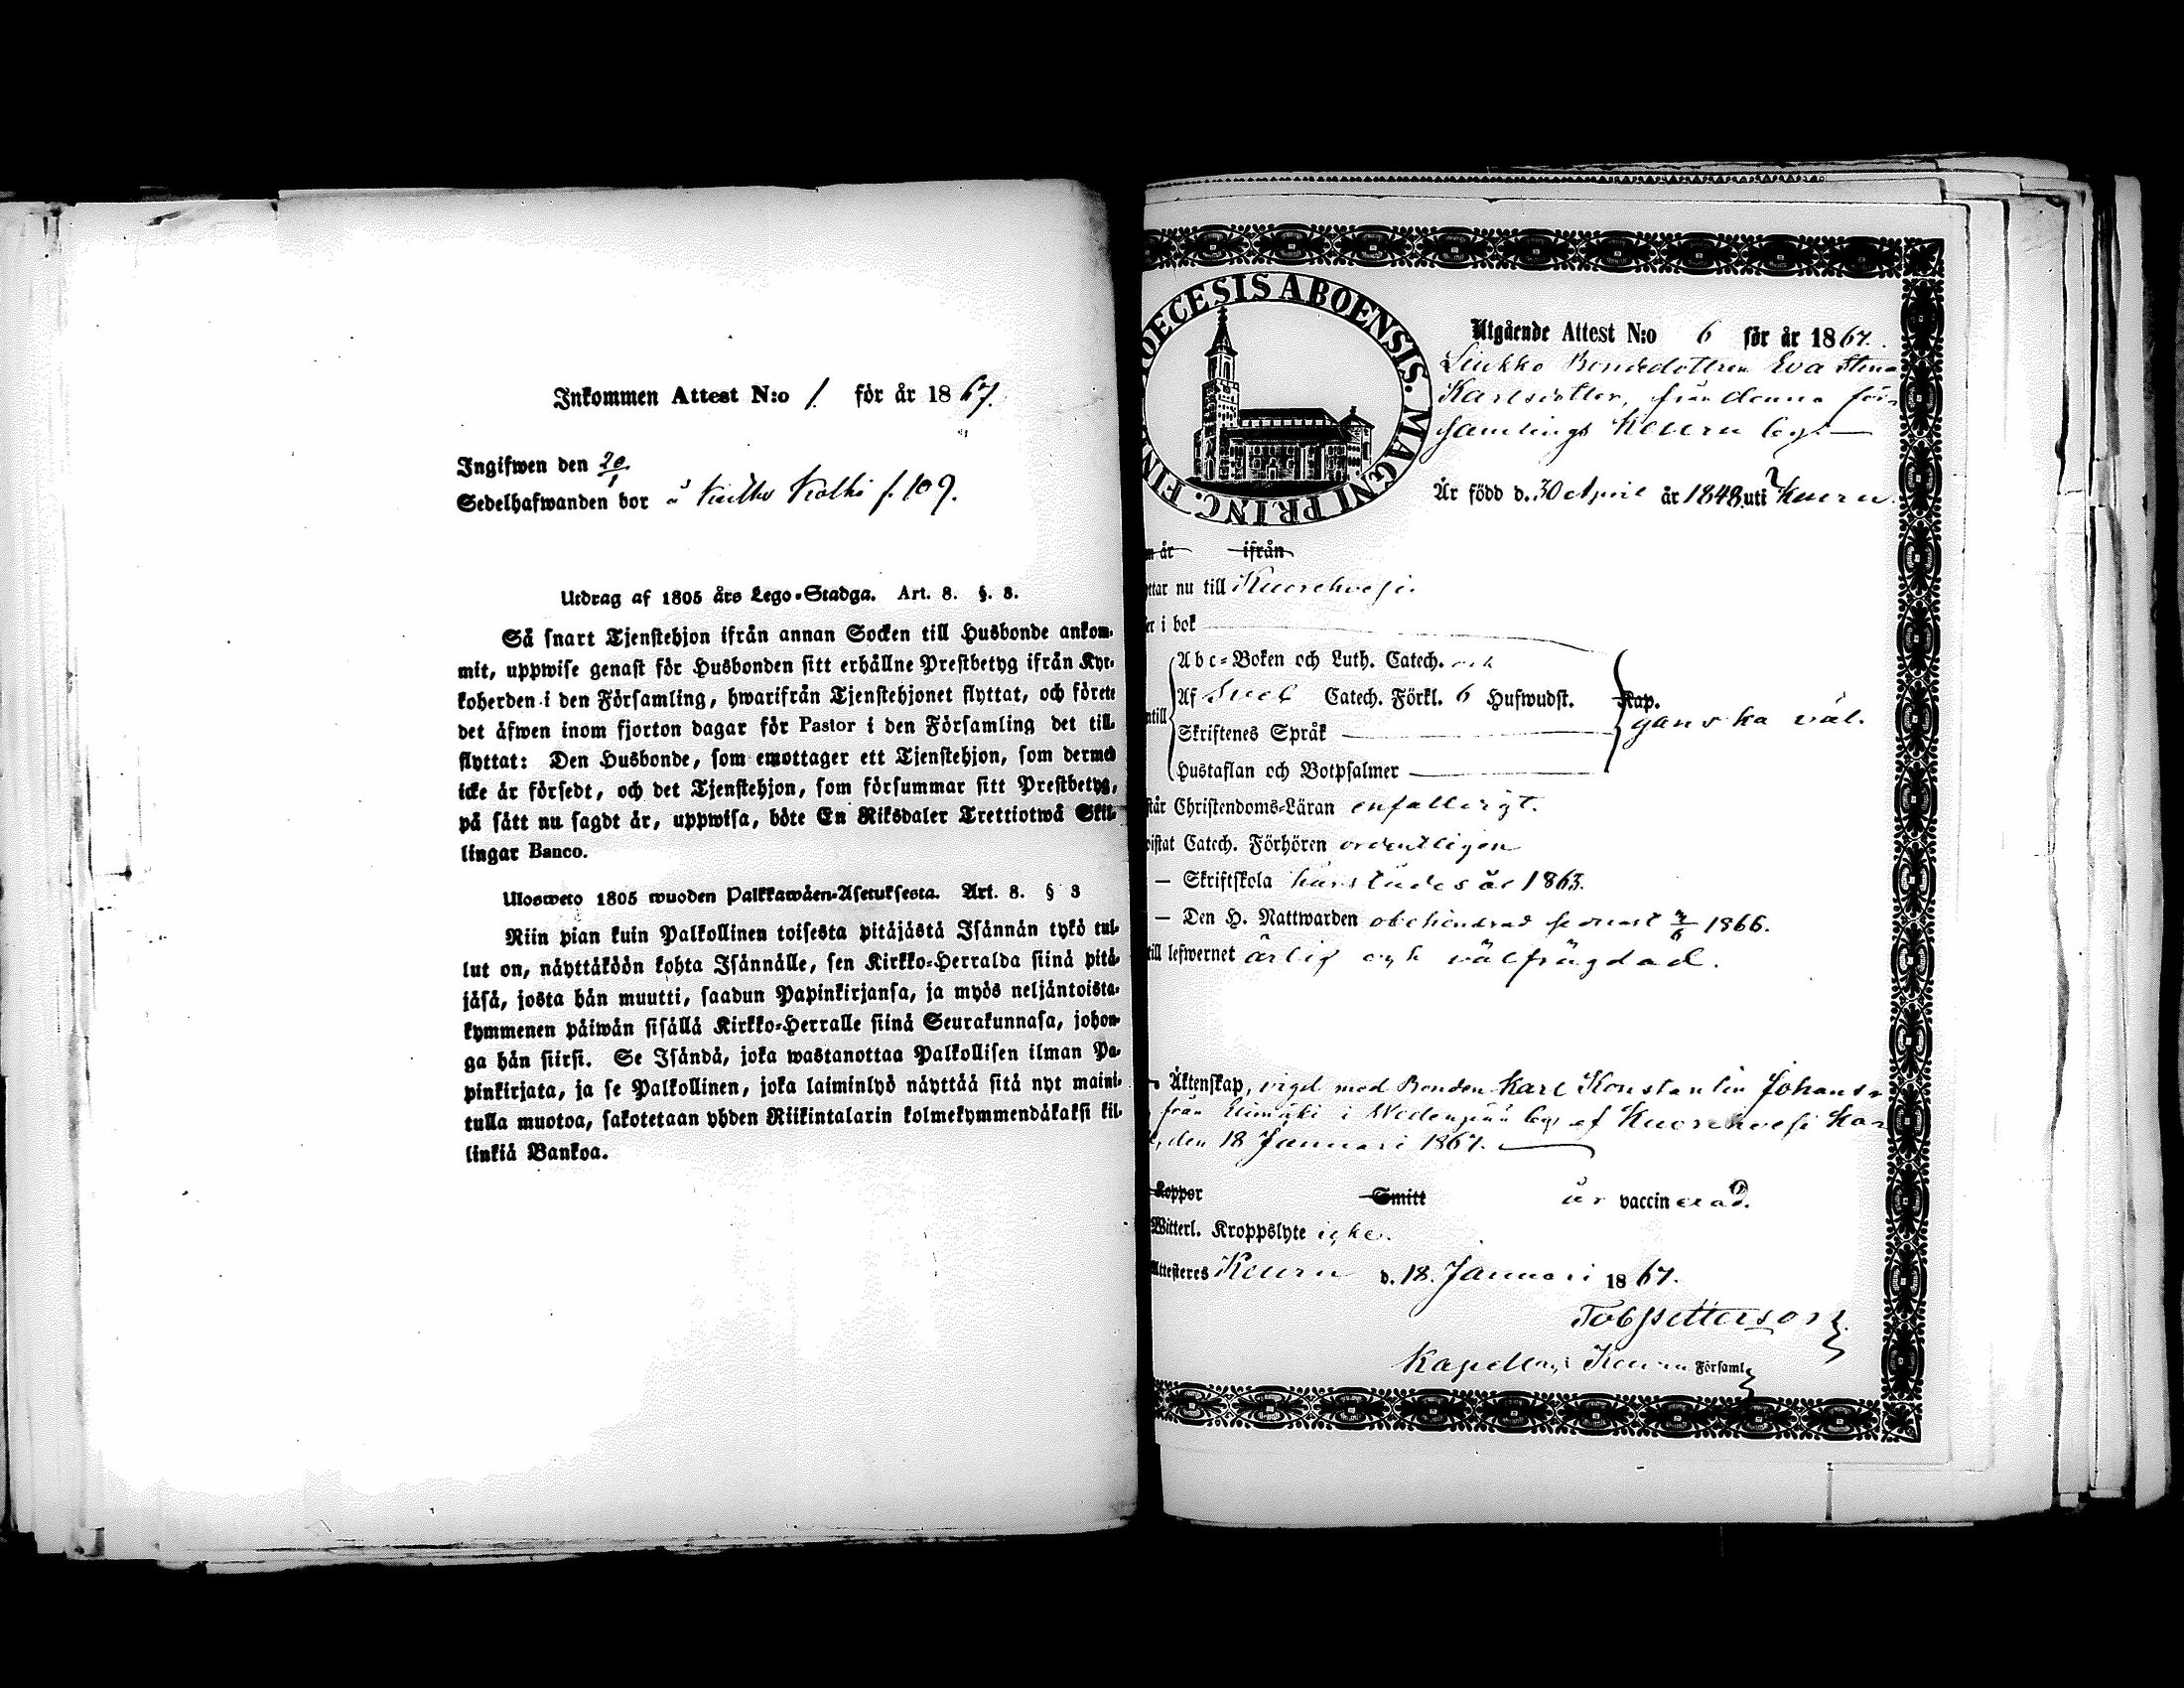 Inkommen Attest N:o 1. för år 1867.
Ingifwen den 20/1
Sedelhafwanden bor å f. 109.
Utdrag af 1805 års Lego-Stadga. Art. 8. §. 3.
Så snart Tjenstehjon ifrån annan Socken till Husbonde ankom-
mit, uppwise genast för Husbonden sitt erhållne Prestbetyg ifrån Kyr-
koherden i den Församling, hwarifrån Tjenstehjonet flyttat, och förete
det äfwen inom fjorton dagar för Pastor i den Församling det till-
flyttat: Den Husbonde, som emottager ett Tjenstehjon, som dermed
icke är försedt, och det Tjenstehjon, som försummar sitt Prestbetyg,
på sätt nu sagdt är, uppwisa, böte En Riksdaler Trettiotwå Skil-
lingar Banco.
Ulosweto 1805 wuoden Palkkawäen-Asetuksesta. Art. 8. § 3
Niin pian kuin Palkollinen toisesta pitäjästä Isännän tykö tul-
lut on, näyttäköön kohta Isännälle, sen Kirkko-Herralda siinä pitä-
jäsä, josta hän muutti, saadun Papinkirjansa, ja myös neljäntoista-
kymmenen päiwän sisällä Kirkko-Herralle siinä Seurakunnasa, johon-
ga hän siirsi. Se Isändä, joka wastanottaa Palkollisen ilman Pa-
pinkirjata, ja se Palkollinen, joka laiminlyö näyttää sitä nyt maini-
tulla muotoa, sakotetaan yhden Riikintalarin kolmekymmendäkaksi kil-
linkiä Bankoa.
OECESIS ABOENSIS. MAGNI PRINC. FIN
Utgående Attest N:o 6 för år 1867.
Liukko Bondedottren Eva Stina
Karlsdotter, från denna för-
samlings Keuru by.
Är född d. 30 April år 1848. uti Keuru.
n år ifrån
ttar nu till Kuorehvesi.
er i bok
Abc-Boken och Luth. Catech. och
Af Sveb Catech. Förkl. 6 Hufwudst. Kap.
ntill
ganska väl.
Skriftenes Språk
Hustaflan och Botpsalmer
står Christendoms-Läran enfalligt.
wistat Catech. Förhören ordentligen
— Skriftskola härstädes år 1863.
— Den H. Nattwarden obehindrad senast 1866.
till lefwernet ärlig och välfrägdad.
Äktenskap, vigd med Bonden Karl Konstantin Johans-
från i by af Kuorehvesi
den 18 Januari 1867.
Koppor Smitt är vaccinerad.
Witterl. Kroppslyte icke.
Attesteres Keuru d. 18. Januari 1867.
Tob Petterson
Kapellan i Keuru Församl